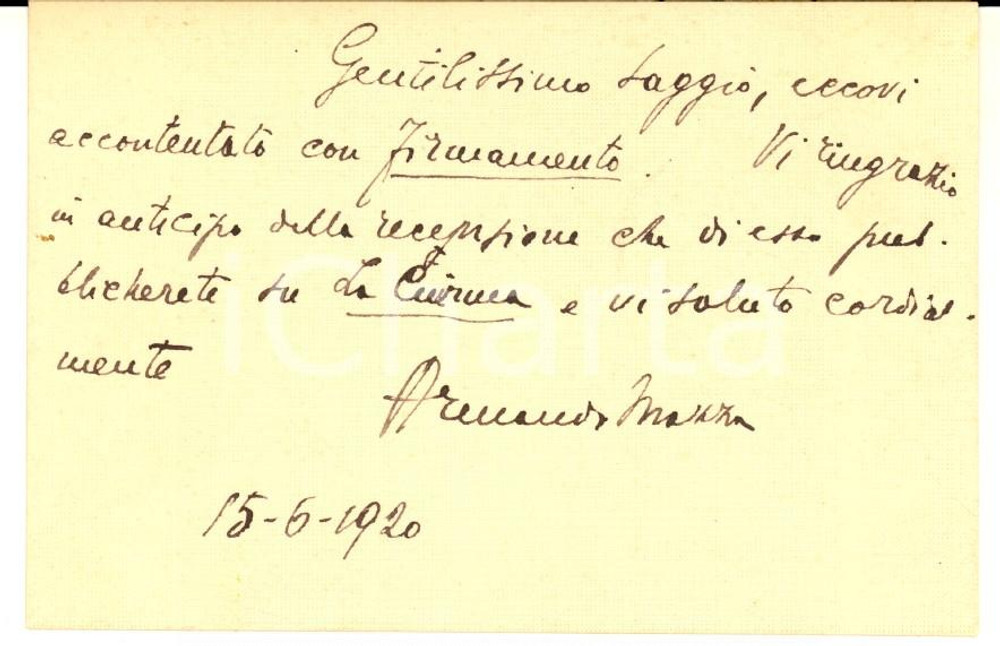 Gentilissimo Saggio, eccovi
accontentato con Firmamento. Vi ringrazio
in anticipo della recensione che di esso pub-
blicherete su La Ciurma e vi saluto cordial-
mente
Armando Mazza
15-6-1920
iCharta